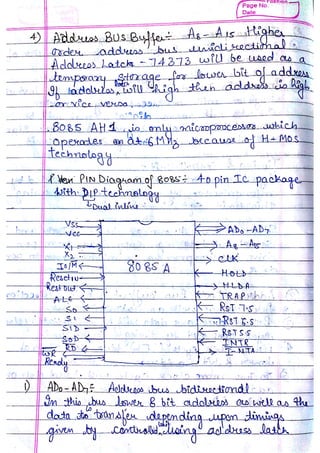 Page No.
Date
4) Address BUS Buffer ÷ A8 - A15 Higher
order address bus unidirectional.
Address Latch - 74373 will be used as a
temporary storage for lower bit of address
If address, will high then address is high
or vice versa.
8085 AH1 is only microprocessor which
operates on at 6 MHz because of H-MOS
technology
PIN Diagram of 8085 ÷ 40 pin Ic package
with DIP technology
Dual inline
Vss
Vcc
X1
X2
IO/M
Reset in
Rest out
ALE
S0
S1
SID
SOD
RD
WR
Ready
8085 A
AD0 - AD7
A8 - A15
CLK
HOLD
HLDA
TRAP
RST 7.5
RST 6.5
RST 5.5
INTR
INTA
1) AD0 - AD7 ÷ Address bus bidirectional
In this bus lower 8 bit address as well as the
data to transfer depending upon timings
given by control, using address latch